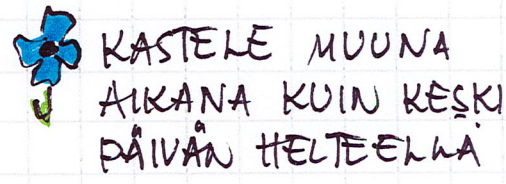 KASTELE MUUNA
AIKANA KUIN KESKI
PÄIVÄN HELTEELLÄ